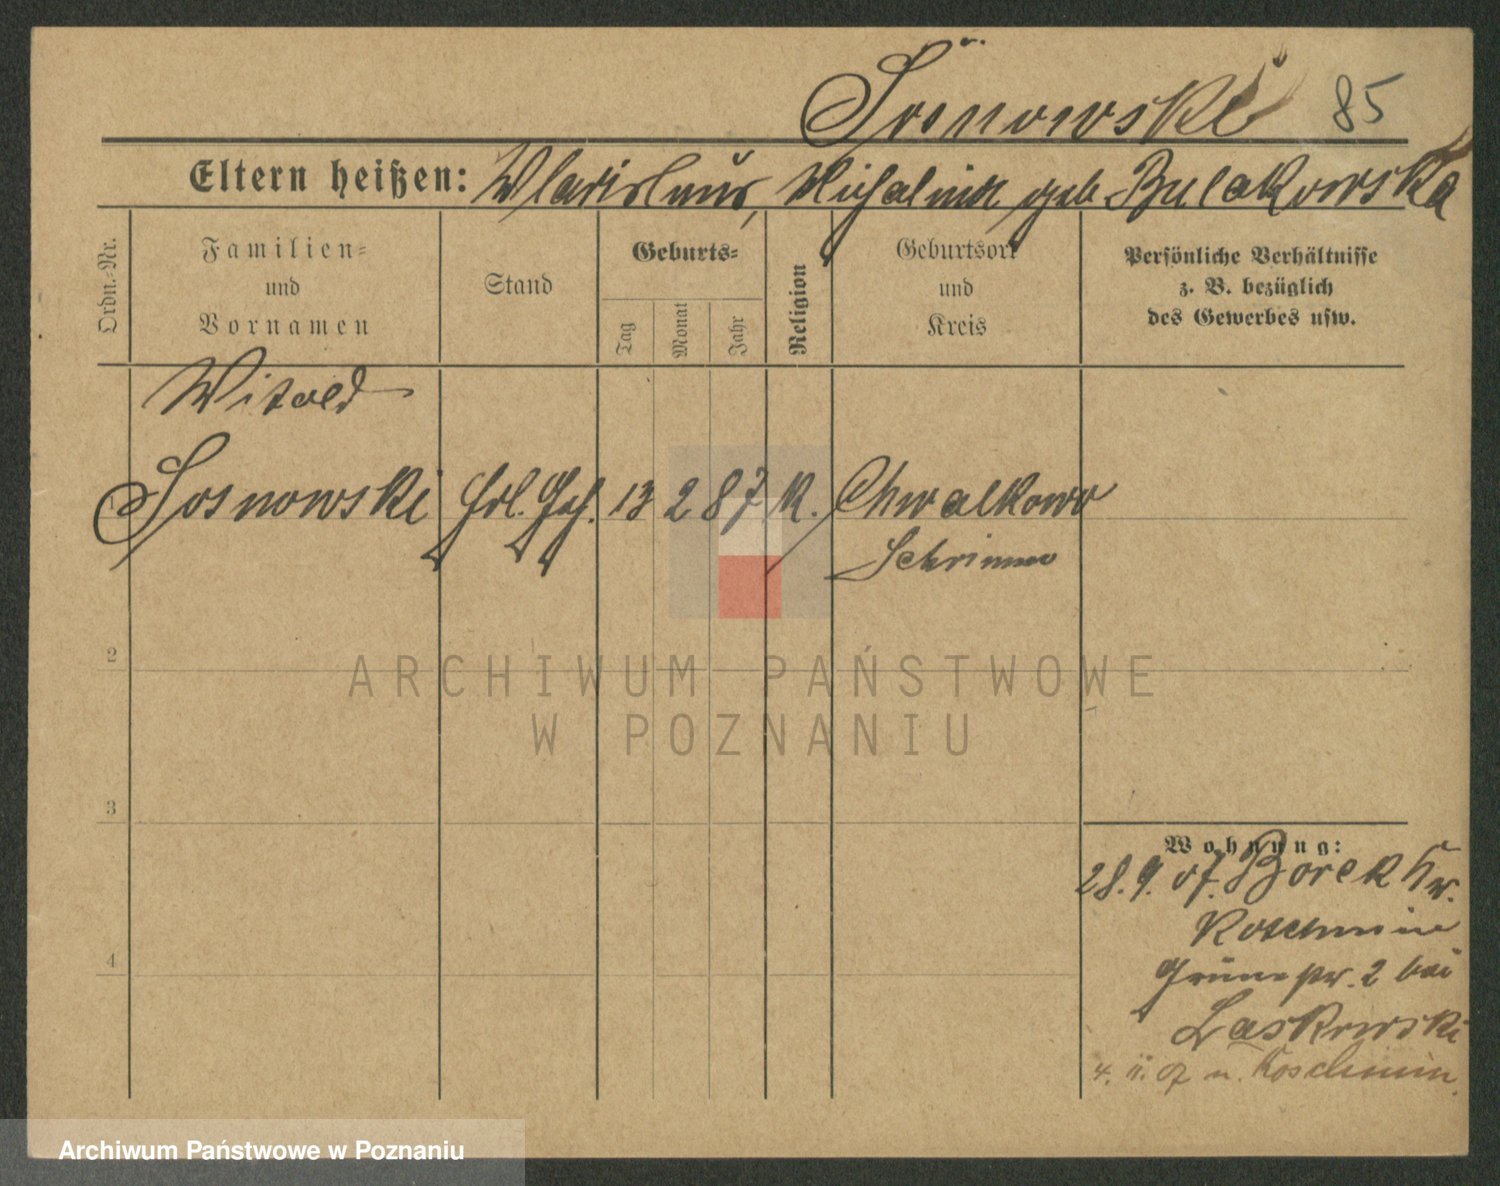 Sosnowski 85
Eltern heißen: Wladislaus, Michalina geb Bulakowska
Ordn.-Nr.
Familien-
und
Vornamen
Stand
Geburts-
Tag
Monat
Jahr
Religion
Geburtsort
und
Kreis
Persönliche Verhältnisse
z. B. bezüglich
des Gewerbes usw.
Witold
Sosnowski
13 2 87 K. Chwalkowo
Schrimm
2
3
4
ARCHIWUM PAŃSTWOWE
W POZNANIU
Wohnung:
28.9.07. Borek Kr.
Koschmin
2 bei
Laskowski
4. 11. 07 n. Koschmin.
Archiwum Państwowe w Poznaniu